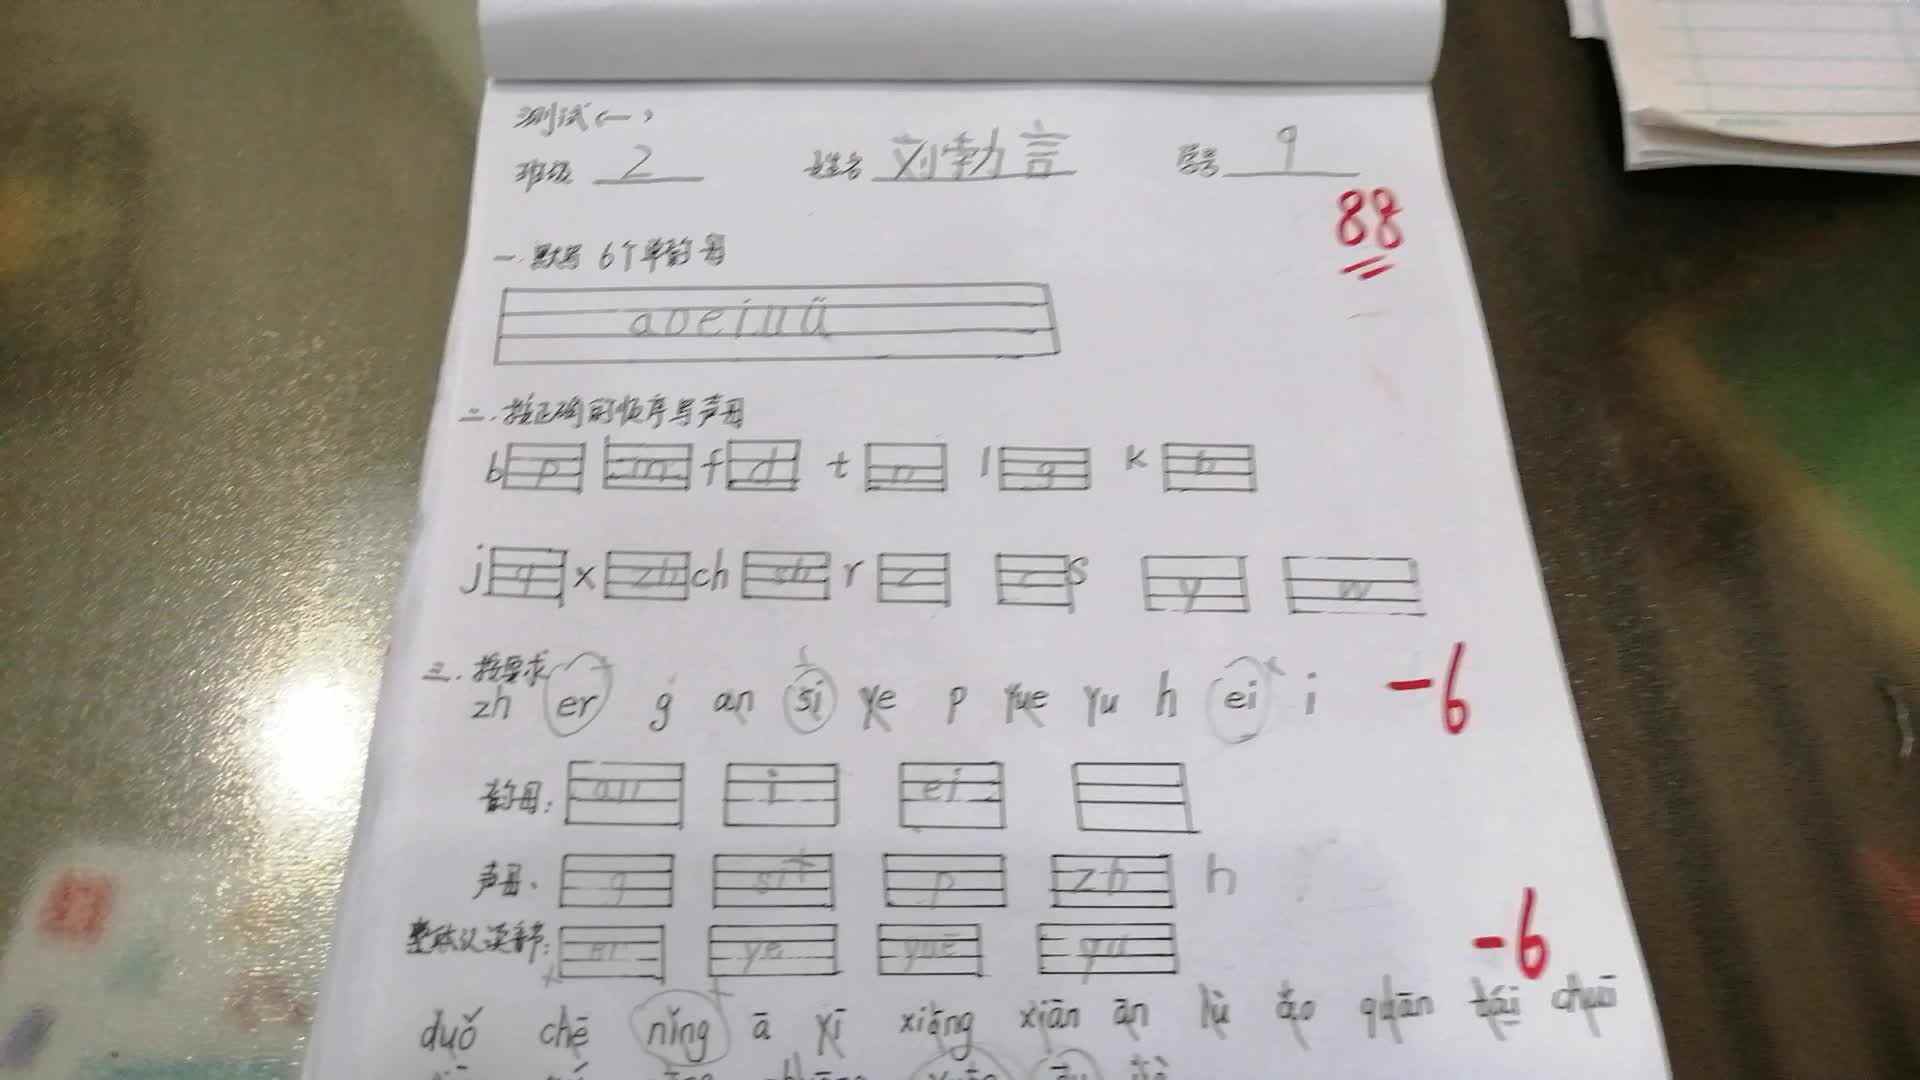 测试(一)
班级 2 姓名 刘勃言 序号 9
88
一.默写6个单韵母
a o e i u ü
二.按正确的顺序写声母
b p m f d t n l g k h
j q x zh ch sh r z c s y w
三.按要求
zh er g an si ye p yue yu h ei i -6
韵母: an i ei
声母: g si p zh h
整体认读音节: er ye yue yu
-6
duǒ chē nǐng ā yī xiǎng xiān ān lǜ ǎo quān tái